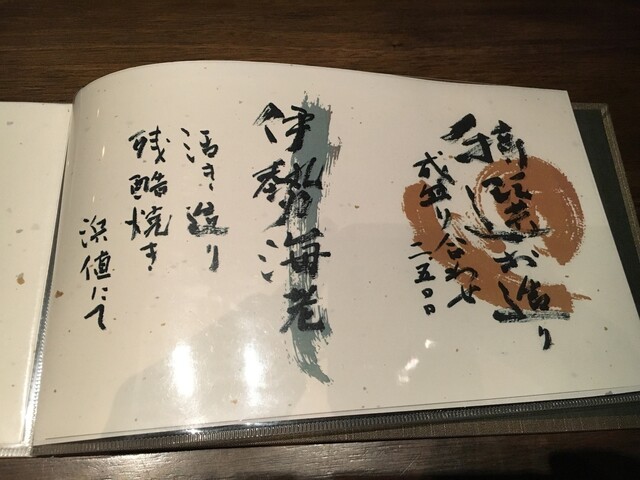 造り
盛り合わせ 二五〇〇
伊勢海老
活き造り
残酷焼き
浜値にて